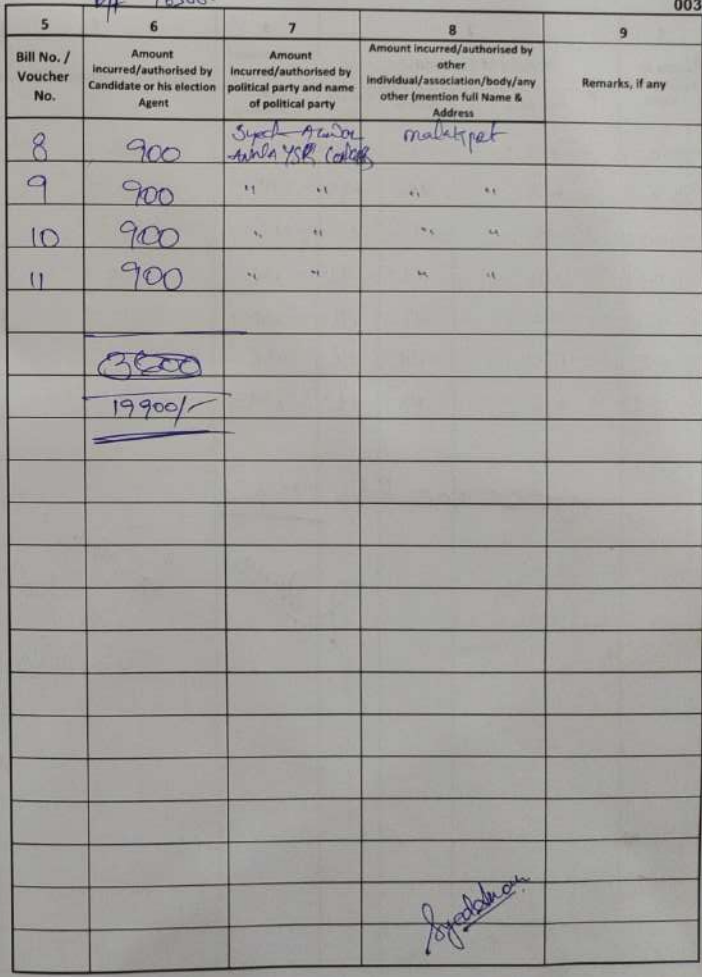 003
5 6 7 8 9
Bill No. / Voucher No.
Amount incurred/authorised by Candidate or his election Agent
Amount incurred/authorised by political party and name of political party
Amount incurred/authorised by other individual/association/body/any other (mention full Name & Address
Remarks, if any
8 900 Syed YSR malakpet
9 900 " " " "
10 900 " " " "
11 900 " " " "
3600
19900/-